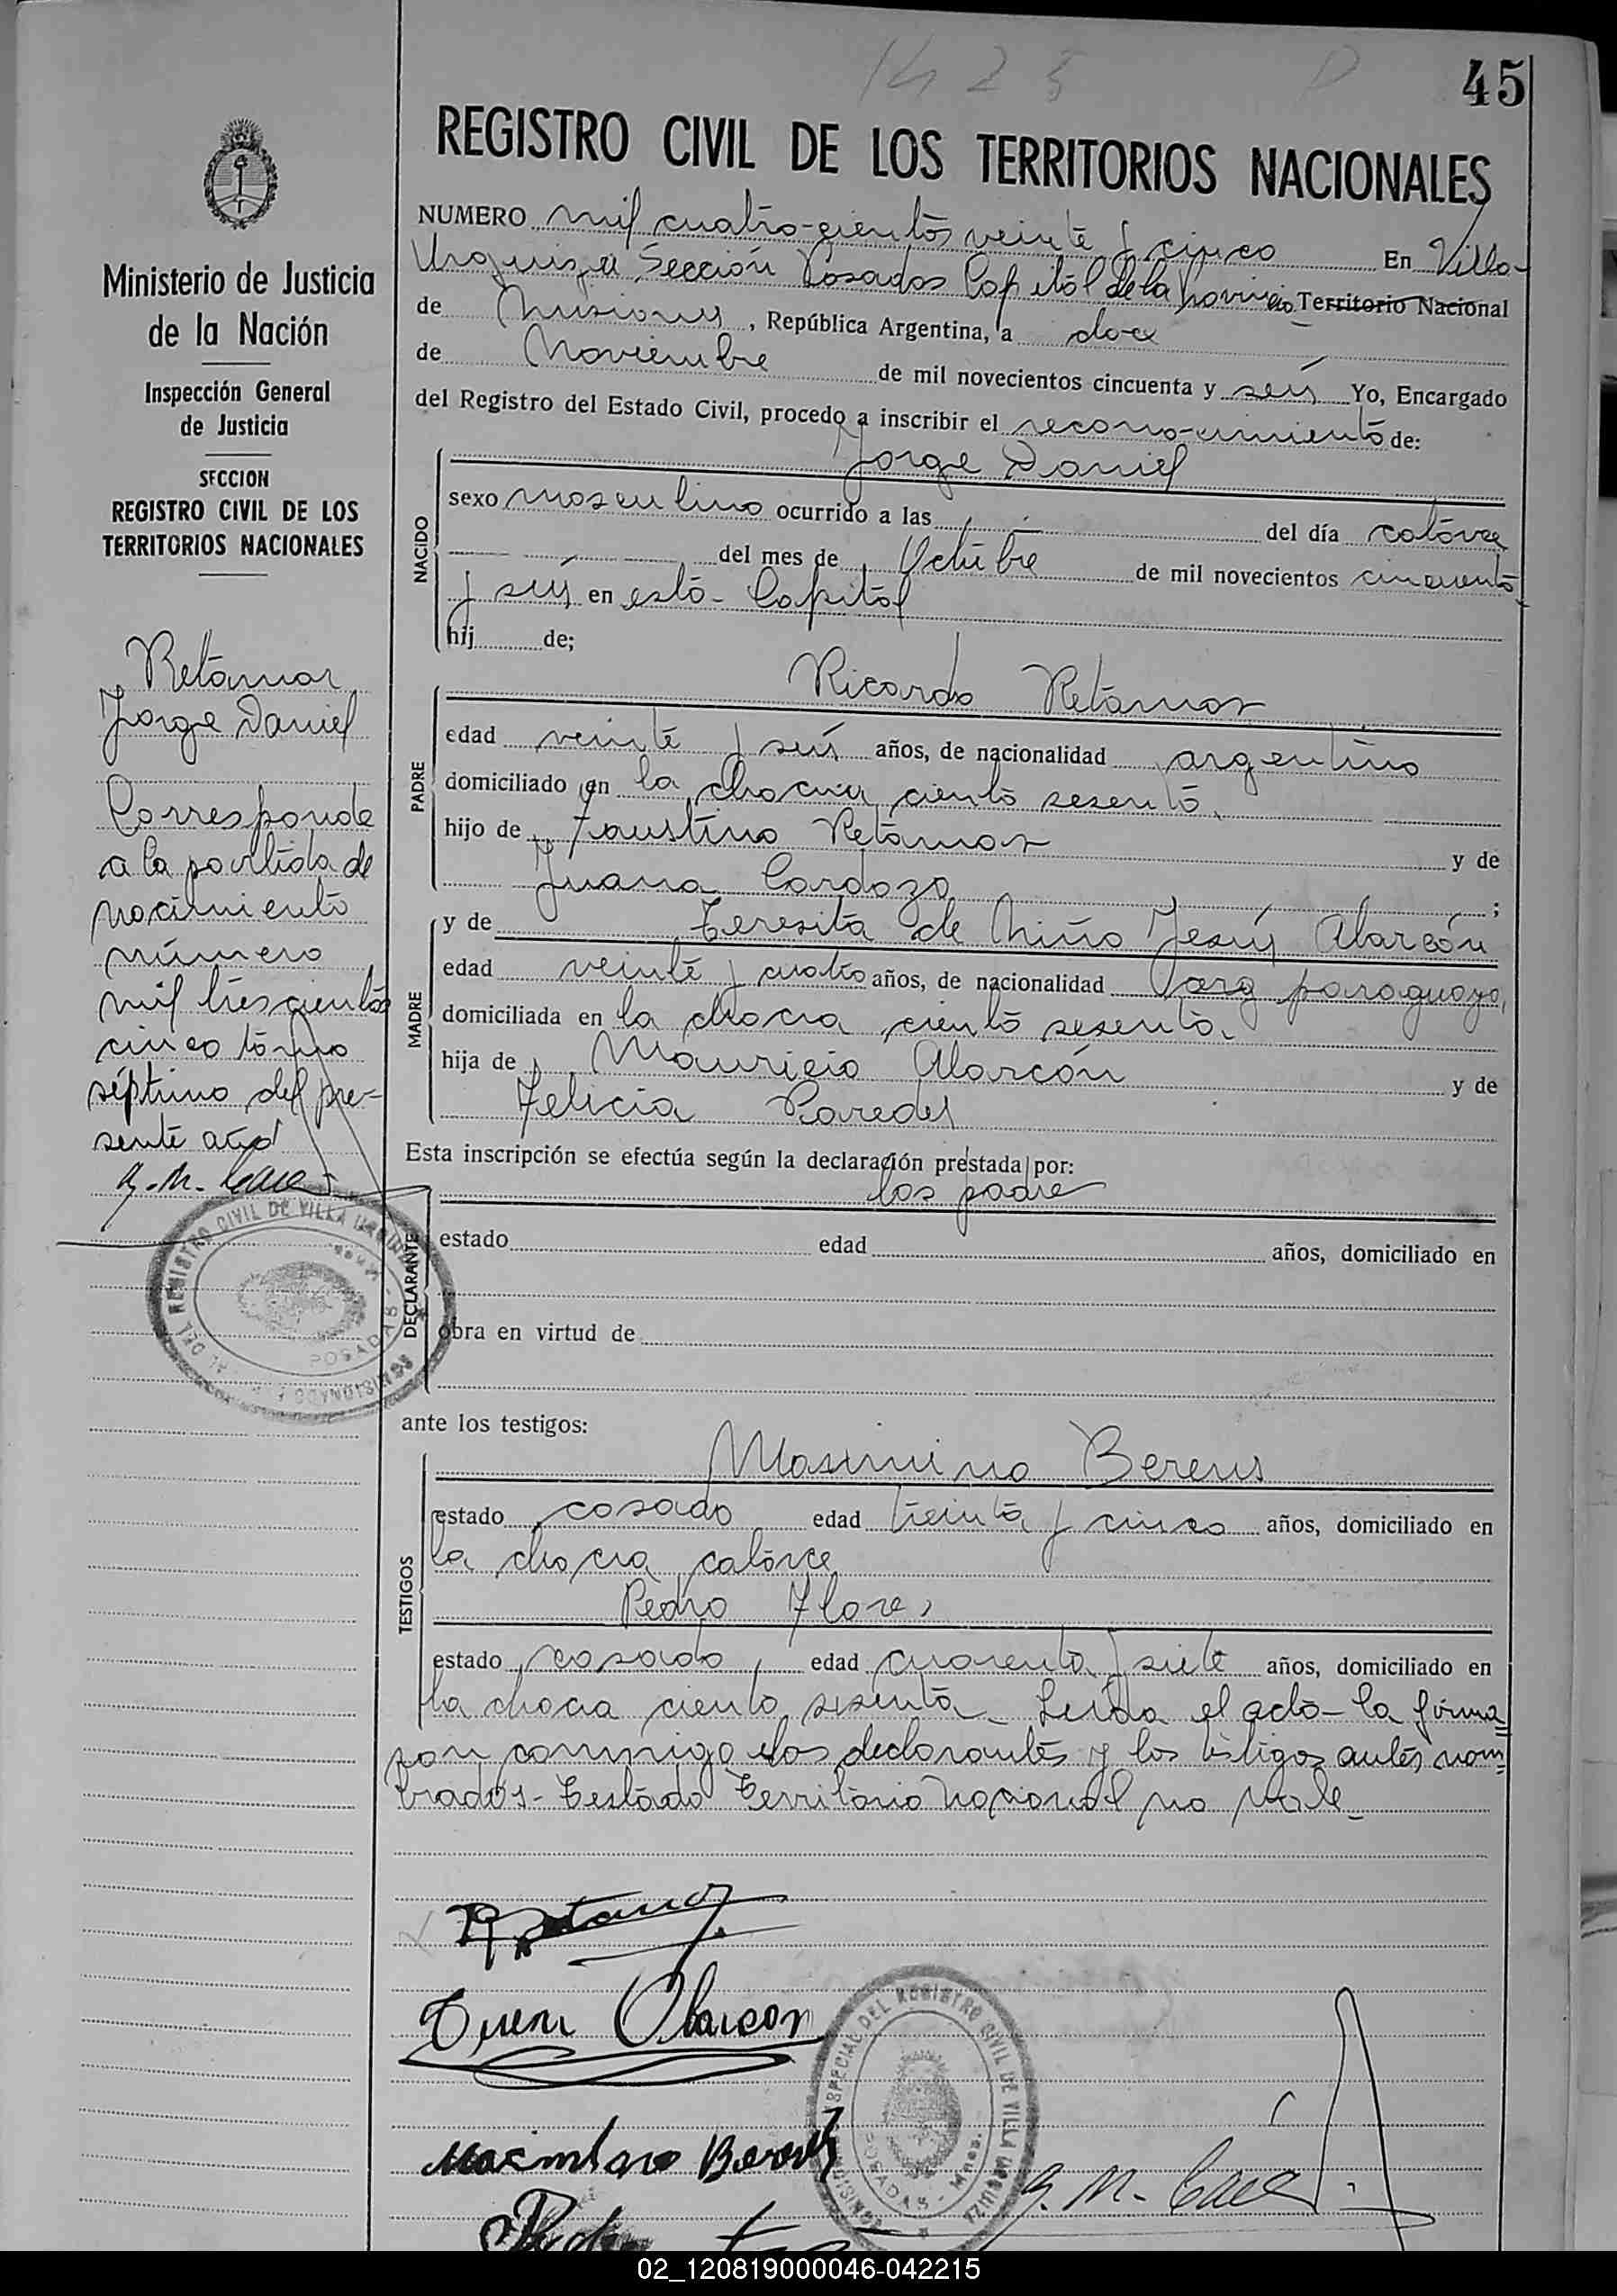 1425
45
REGISTRO CIVIL DE LOS TERRITORIOS NACIONALES
Ministerio de Justicia
de la Nación
Inspección General
de Justicia
SECCION
REGISTRO CIVIL DE LOS
TERRITORIOS NACIONALES
Retamar
Jorge Daniel
Corresponde
a la partida de
nacimiento
número
mil trescientos
cinco tomo
séptimo del pre-
sente año
NUMERO mil cuatro-cientos veinte y cinco En Villa
Urquiza Sección Posadas Capital de la Provincia Territorio Nacional
de Misiones, República Argentina, a doce
de Noviembre de mil novecientos cincuenta y seis Yo, Encargado
del Registro del Estado Civil, procedo a inscribir el recono-cimiento de:
NACIDO
Jorge Daniel
sexo masculino ocurrido a las del día catorce
del mes de Octubre de mil novecientos cincuenta
y seis en esta Capital
hij de;
PADRE
Ricardo Retamar
edad veinte y seis años, de nacionalidad argentino
domiciliado en la chacra ciento sesenta
hijo de Faustino Retamar y de
Juana Cardozo ;
MADRE
y de Teresita de Niño Jesús Alarcón
edad veinte y cuatro años, de nacionalidad paraguaya,
domiciliada en la chacra ciento sesenta.
hija de Mauricio Alarcón y de
Felicia Paredes
Esta inscripción se efectúa según la declaración prestada por:
DECLARANTE
los padre
estado edad años, domiciliado en
obra en virtud de
ante los testigos:
TESTIGOS
Maximino Bereus
estado casado edad treinta y cinco años, domiciliado en
la chacra catorce
Pedro Flores
estado casado edad cuarenta y siete años, domiciliado en
la chacra ciento sesenta - Leída el acta - la firma=
ron conmigo los declarantes y los testigos antes nom=
brados - Testado Territorio Nacional no vale
REGISTRO CIVIL DE VILLA URQUIZA
POSADAS
02_120819000046-042215